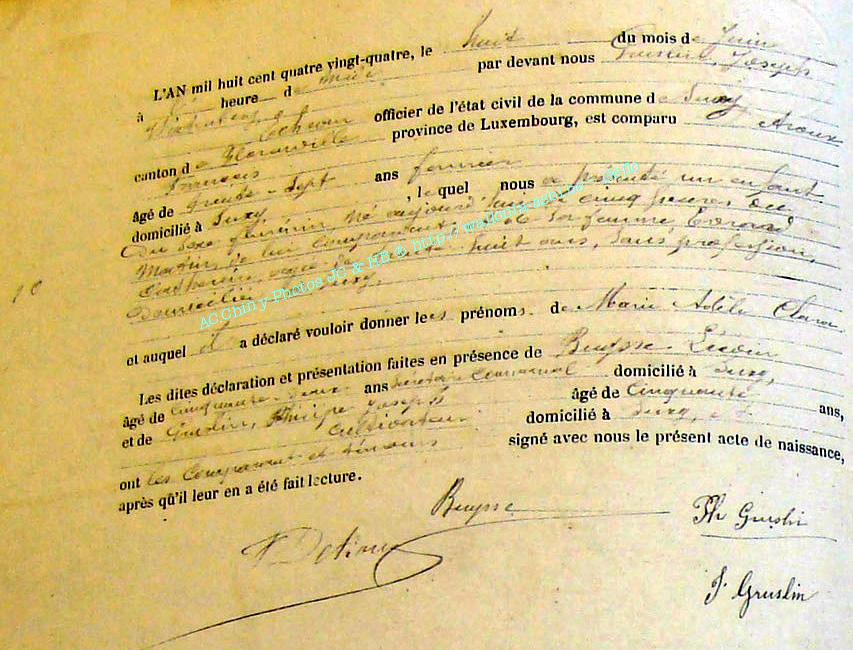 L'AN mil huit cent quatre vingt-quatre, le huit du mois de Juin
à heure de midi par devant nous Gruslin, Joseph
Echevin officier de l'état civil de la commune de Suxy
canton de Florenville province de Luxembourg, est comparu
François
âgé de trente-sept ans fermier
domicilié à Suxy, lequel nous a présenté un enfant
du sexe féminin né aujourd'hui à cinq heures du
matin, de lui comparant et de sa femme, Evrard
Catherine, âgée de huit ans, sans profession,
domiciliée à Suxy,
et auquel il a déclaré vouloir donner les prénoms de Marie Adèle Clara
Les dites déclaration et présentation faites en présence de Buysse
âgé de cinquante-deux ans secrétaire communal domicilié à Suxy,
et de Gruslin, Philippe Joseph âgé de cinquante ans,
cultivateur domicilié à Suxy,
ont les comparant et témoins signé avec nous le présent acte de naissance,
après qu'il leur en a été fait lecture.
Buysse
Ph Gruslin
J. Gruslin
AC Chiny Photos JC & HB © http://